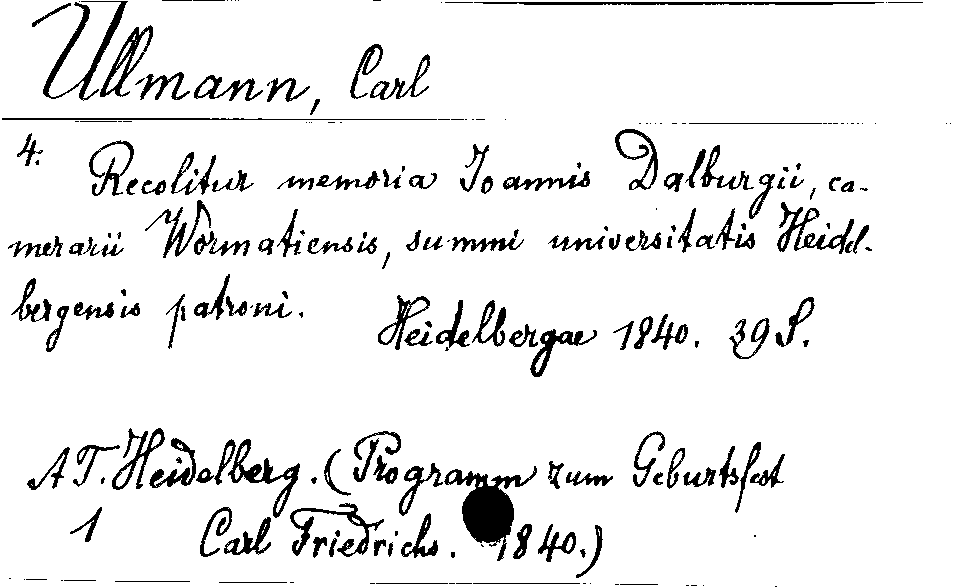 Ullmann, Carl
4.
Recolitur memoria Ioannis Dalburgii, ca-
merarii Wormatiensis, summi universitatis Heidel-
bergensis patroni.
Heidelbergae 1840. 39 S.
AT. Heidelberg. (Programm zum Geburtsfest
1 Carl Friedrichs. 1840.)